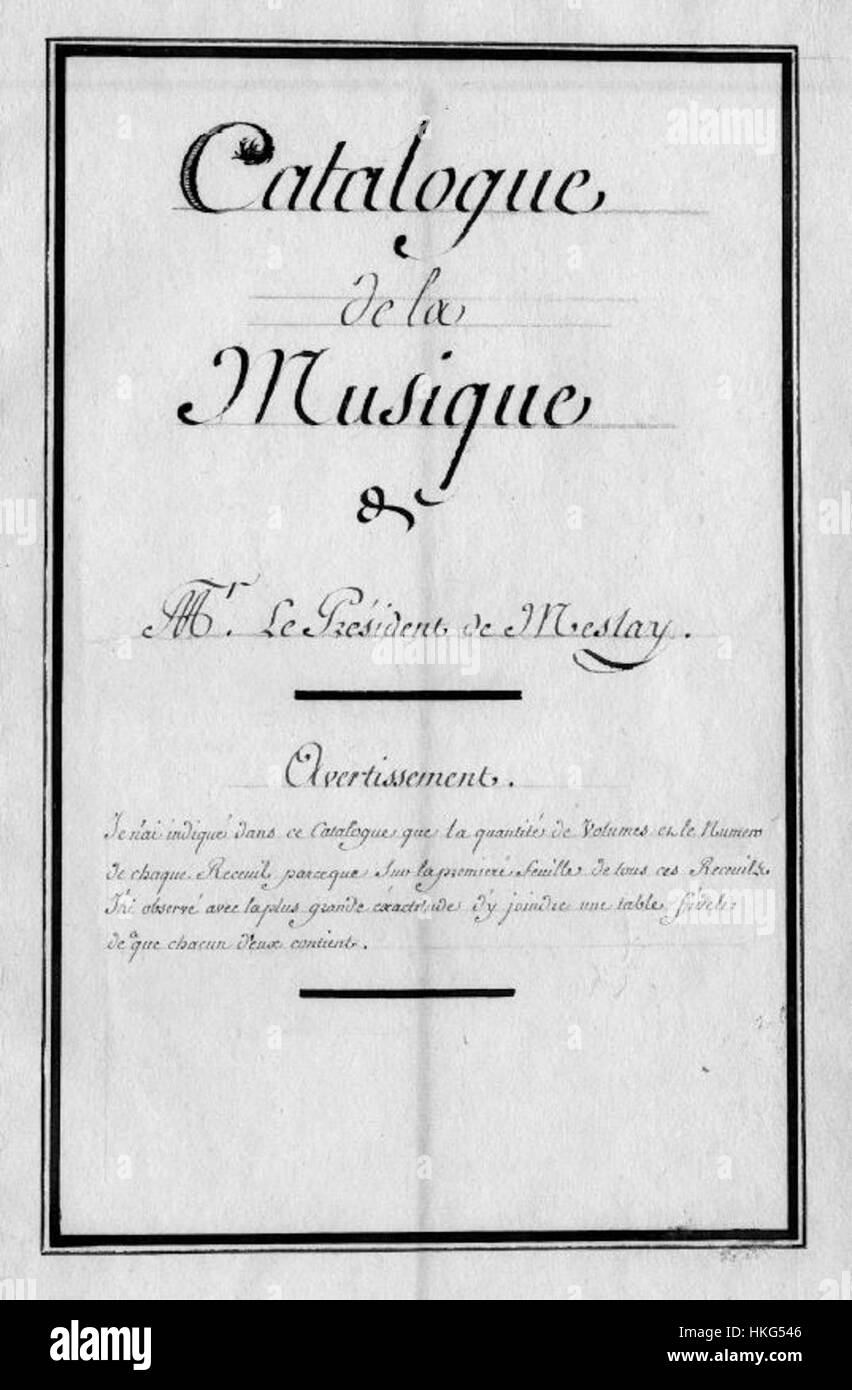 Catalogue
de la
Musique
de
Mr. Le Président de Meslay.
Avertissement.
Je n'ai indiqué dans ce Catalogue que la quantité de Volumes et le Numero
de chaque Receuil parceque Sur la premiere feuille de tous ces Receuils
J'ai observé avec la plus grande éxactitude d'y joindre une table fidele
de que chacun d'eux contient.
alamy
Image ID: HKG546
www.alamy.com